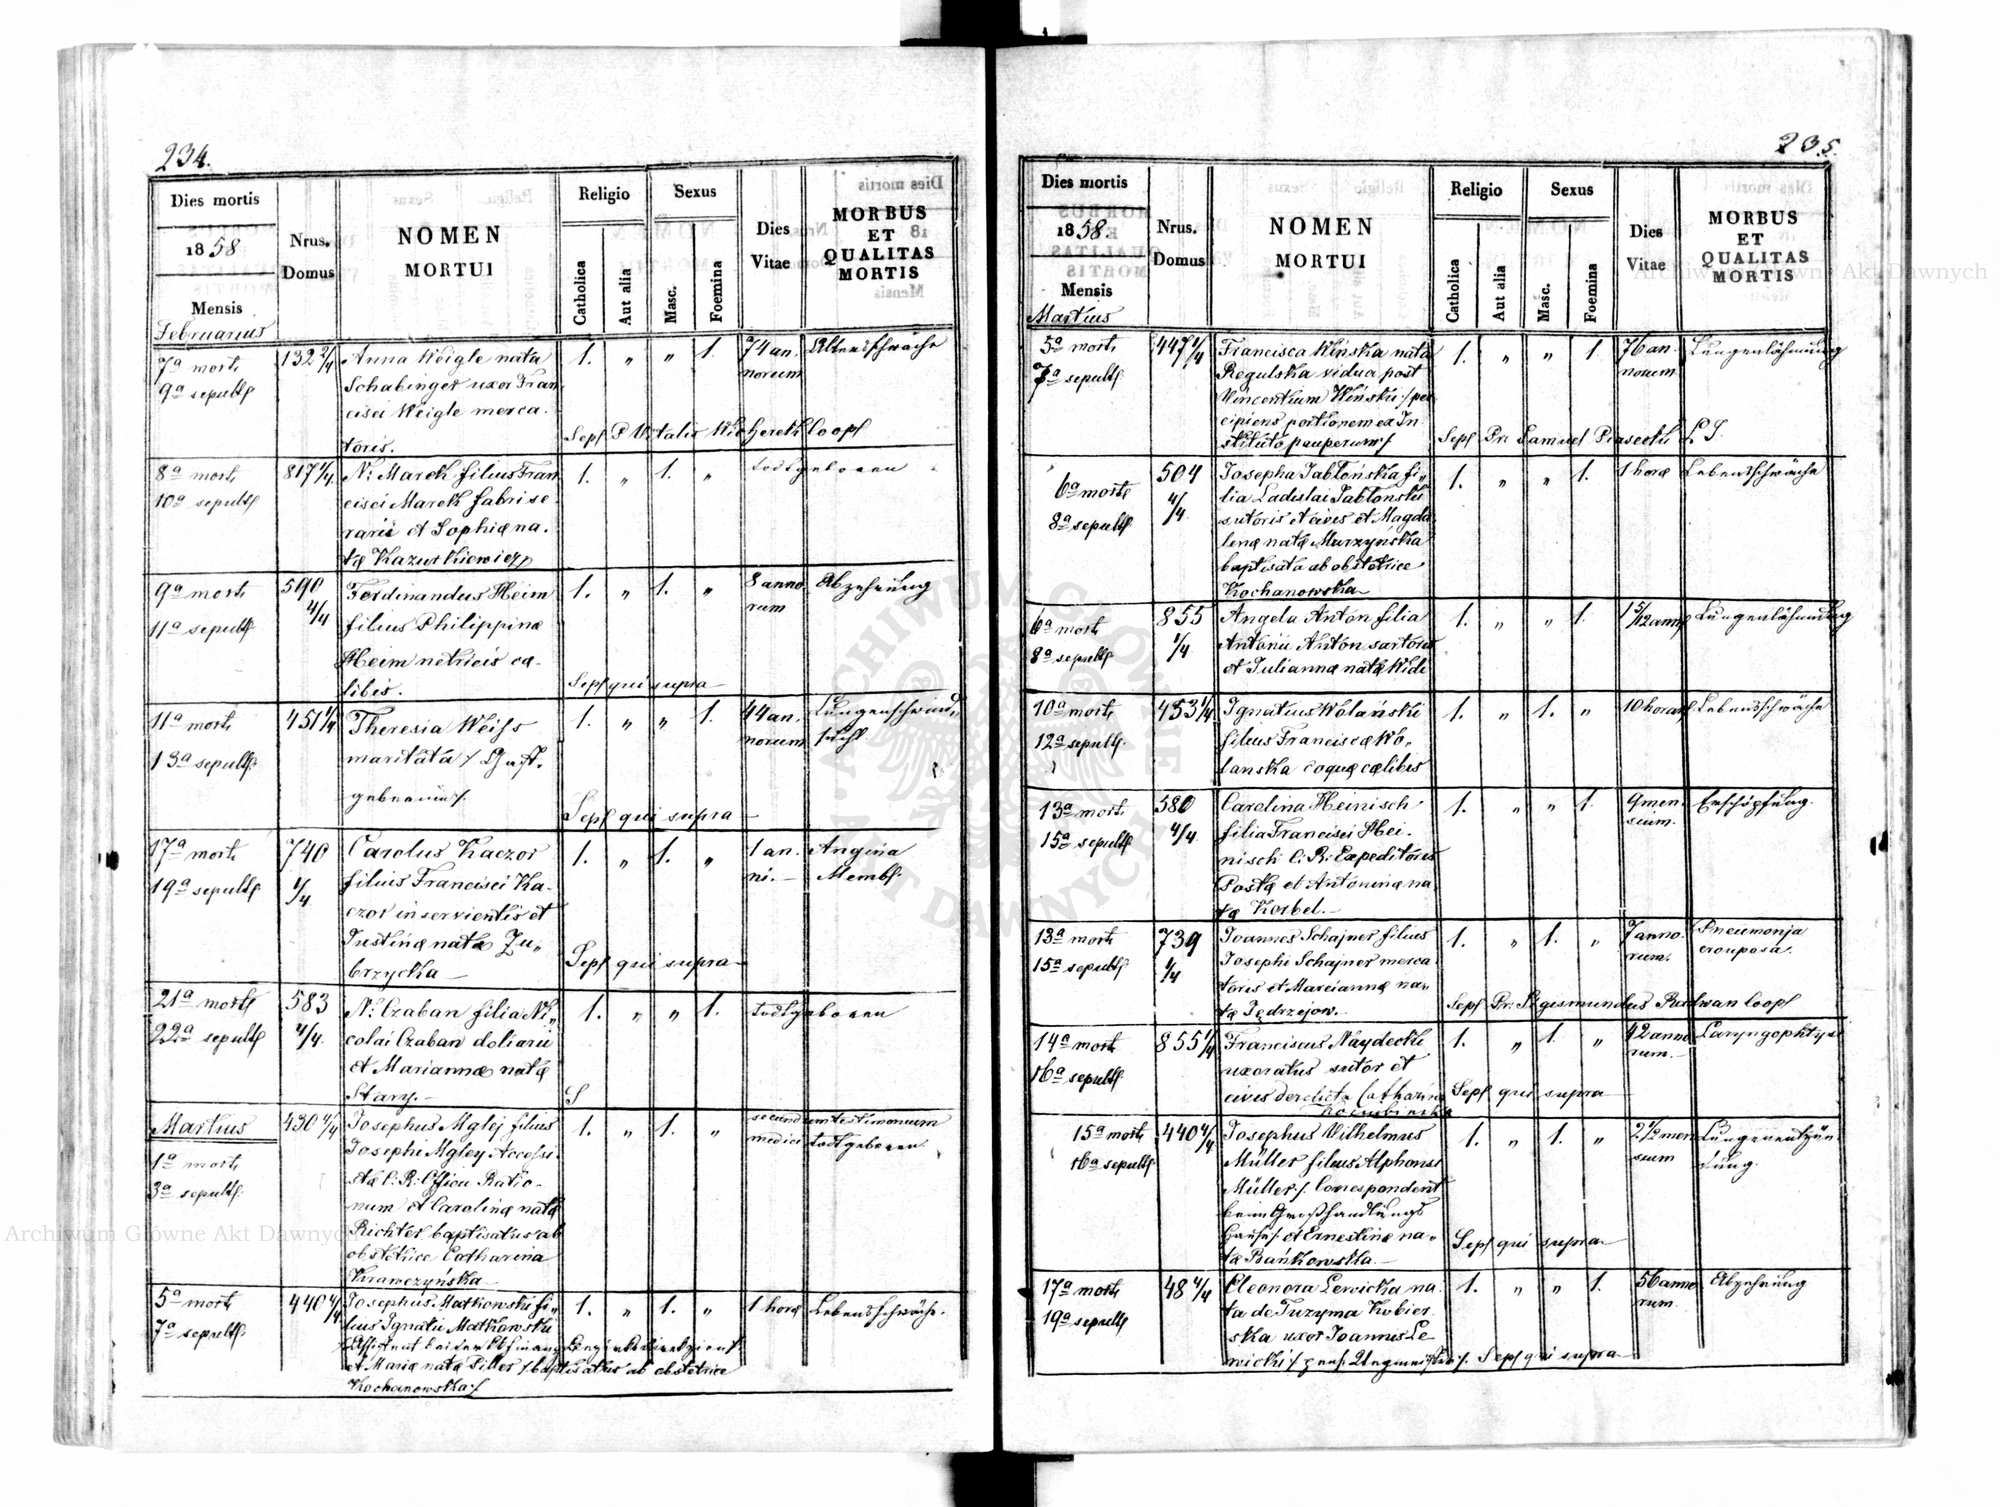 234.
Dies mortis
1858
Mensis
Februarius
Nrus.
Domus
NOMEN
MORTUI
Religio
Catholica
Aut alia
Sexus
Masc.
Foemina
Dies
Vitae
MORBUS
ET
QUALITAS
MORTIS
7a mort.
9a sepult.
132 2/4
Anna Weigle nata
Schabinger uxor Fran
cisci Weigle merca-
toris.
1. " " 1.
74 an.
norum
Altersschwäche
Sep. P. Vitalis
8a mort.
10a sepult.
817 1/4
N: Marek filius Fran
cisci Marek fabri se
rarii et Sophiae na-
tae Kazurkiewicz
1. " 1. "
todtgeboren
9a mort.
11a sepult.
590
4/4
Ferdinandus Heim
filius Philippinae
Heim netricis ca-
libis.
1. " 1. "
8 anno
rum
Abzehrung
Sep. qui supra
11a mort.
13a sepult.
451 1/4
Theresia Weiss
maritata
1. " " 1.
44 an.
norum
Lungenschwind-
sucht
Sep. qui supra
17a mort.
19a sepult.
740
1/4
Carolus Kaczor
filius Francisci Ka-
czor inservientis et
Justinae nata Zu-
brzycka
1. " 1. "
1 an.
ni.
Angina
Memb.
Sep. qui supra
21a mort.
22a sepult.
583
4/4.
N: Czaban filia Ni-
colai Czaban doliarii
et Mariannae natae
Stary.
1. " " 1.
todtgeboren
S
Martius
1a mort.
3a sepult.
430 4/4
Josephus Mgley filius
Josephi Mgley Accessi-
stae C: R: Officii Ratio-
num et Carolinae natae
Richter baptisatus ab
obstetrice Catharina
Krawczyńska
1. " 1. "
secundum testimonium
medici todtgeboren
5a mort.
7a sepult.
440 4/4
Josephus Matkowski fi-
lius Ignatii Matkowski
et Mariae natae Piller / baptisatus ab obstetrice
Kochanowska /
1. " 1. "
1 hora
Lebensschwäche.
235.
Dies mortis
1858.
Mensis
Martius
Nrus.
Domus
NOMEN
MORTUI
Religio
Catholica
Aut alia
Sexus
Masc.
Foemina
Dies
Vitae
MORBUS
ET
QUALITAS
MORTIS
5a mort.
7a sepult.
447 4/4
Francisca Wińska nata
Regulska vidua post
Vincentium Wiński / per
cipiens portionem ex In
stituto pauperum /
1. " " 1
76 an.
norum
Lungenlähmung
Sep. Pr. Samuel Piasecki
6a mort.
8a sepult.
504
4/4
Josepha Jabłońska fi-
lia Ladislai Jabłoński
sutoris et civis et Magda
lenae natae Murzyńska
baptisata ab obstetrice
Kochanowska
1. " " 1.
1 hora
Lebensschwäche
6a mort.
8a sepult.
855
1/4
Angela Anton filia
Antonii Anton sartoris
et Juliannae natae Widi
1. " " 1.
1 5/12 anni
Lungenlähmung
10a mort.
12a sepult.
453 1/4
Ignatius Wolański
filius Franciscae Wo-
lanska coquae caelibis
1. " 1. "
10 horas
Lebensschwäche
13a mort.
15a sepult.
580
4/4
Carolina Heinisch
filia Francisci Hei-
nisch C: R: Expeditoris
Postae et Antoninae na
tae Korbel.
1. " " 1.
9 men-
sium.
Erschöpfung.
13a mort.
15a sepult.
739
1/4
Joannes Schajner filius
Josephi Schajner merca
toris et Marciannae na-
tae Jędrzejow.
1. " 1. "
7 anno-
rum.
Pneumonja
crouposa.
Sep. Pr: Sigismundus Radwan coop.
14a mort.
16a sepult.
855 1/4
Franciscus Naydecki
uxoratus sutor et
civis derelicta Catharina
1. " 1. "
42 anno
rum.
Laryngophtysis
Sep. qui supra
15a mort.
16a sepult.
440 4/4
Josephus Wilhelmus
Müller filius Alphonsi
Müller / Correspondent
beim Großhandlungs
Hause / et Ernestinae na-
tae Bańkowska.
1. " 1. "
2 1/2 men
sium
Lungenentzün-
dung.
Sep. qui supra
17a mort.
19a sepult.
48 4/4
Eleonora Lewicka na
ta de Juzyma Kobier
ska uxor Joannis Le
wicki
1. " " 1.
56 anno
rum.
Abzehrung
Sep. qui supra
Archiwum Główne Akt Dawnych
Archiwum Główne Akt Dawnych
ARCHIWUM GŁÓWNE AKT DAWNYCH